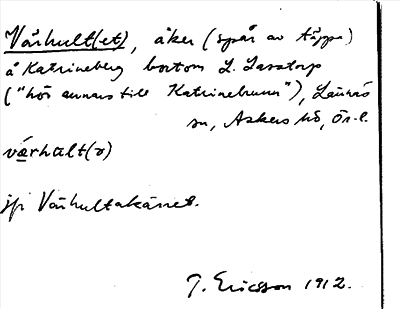 Vårhult(et), åker (spår av täppa)
å Katrineberg bortom L. Lasstorp
("hör annars till Katrinebrunn"), Lännäs
sn, Askers hd, Ör. l.
vårhult(ə)
jfr Vårhultakärret.
T. Ericsson 1912.